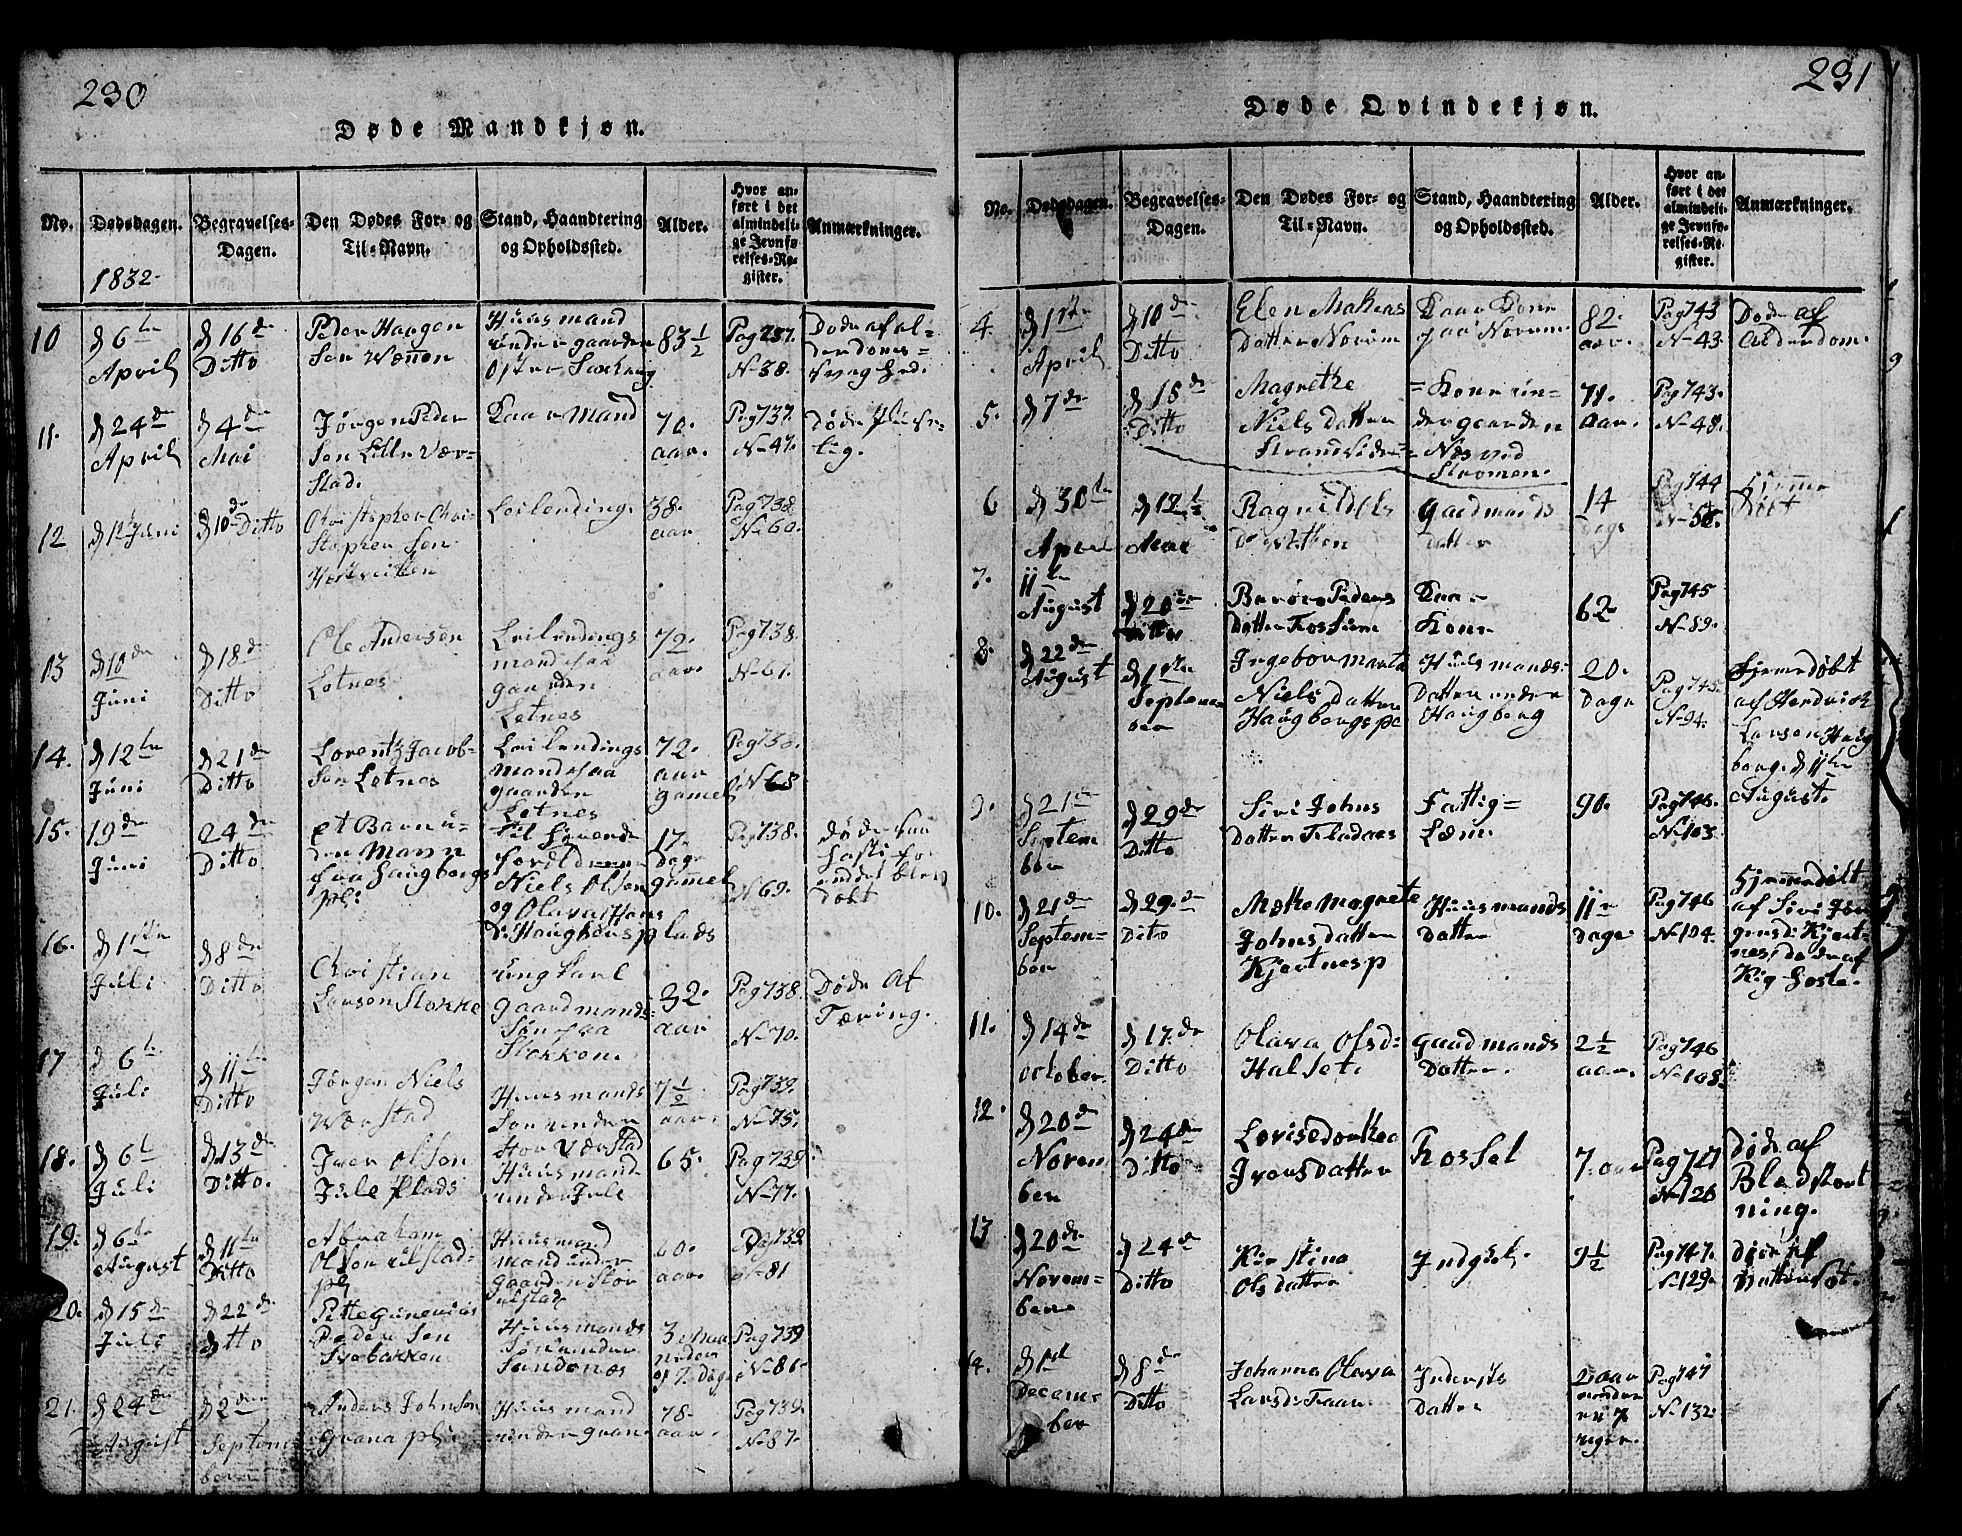 230
Døde Mandkjøn.
No.
Dødsdagen.
Begravelses-
Dagen.
Den Dødes For- og
Til-Navn.
Stand, Haandtering
og Opholdssted.
Alder.
Hvor an-
ført i det
almindeli-
ge Jevnfø-
relses-Re-
gister.
Anmærkninger.
1832
10
d 6te
April
d 16de
Ditto
Peder Haagen
Sen
Huusmand
under gaarden
83 1/2
Pag 737.
No 38.
Døde af al-
derdoms-
svaghed.
11.
d 24de
April
d 4de
Mai
Jørgen Peder
Sen Lille Vær-
Stad.
Kaar Mand
70.
aar.
Pag 737.
No 47.
Døde
lig.
12
d 12 Juni
d 10de Ditto
Christopher Chri-
Stopher Sen
Leilending.
38.
aar
Pag 738
No 60.
13
d 10de
Juni
d 18de
Ditto
Ole Andersen
Letnes
Leilendings
mand paa
gaarden
Letnes
72
aar.
Pag 738.
No 61.
14.
d 12te
Juni
d 21de
Ditto
Lorentz Jacob-
Sen Letnes
Leilendings
Mand paa
gaarden
Letnes
72.
aar
gamel
Pag 738.
No 68
15.
19de
Juni
24de
Ditto
et Barn u-
den Navn
fra Haugbergs
pl:
Niels Olsen
og Olava
17.
Dage
gammel
Pag 738.
No 69.
døde saa
hasti for
endet blev
Døbt
16.
d 1ste
Juli
d 8de
Ditto
Christian
Larsen Stokke
ung karl
gaardmands
Søn paa
Stokken.
32.
aar
Pag 738.
No 70.
Døde af
Tæring.
17
d 6te
Juli
d 11te
Ditto
Jørgen Niels
Værstad
Huusmands
Søn under
Stor Værstad
7 1/2
aar.
Pag 739.
No 75.
18.
d 6te
Juli
d 13de
Ditto.
Iver Olsen
Jule Plads
Huusmand
under Jule
65.
Pag 739
No 77.
19.
d 6te
August
d 11te
Ditto
Abraham
Olsen Ulstad-
pl
Huusmand
mand under
gaarden Stor
ulstad
60.
aar.
Pag 739
No 81
20.
d 15de
Juli
d 22de
Ditto
Peder Sen
Svebakken
Huusmands
Søn under
Sandenes
3 Maa
neder
og 7. Dage
Pag 739
No 86
21.
d 24de
August
d 2den
Septem
ber
Anders Johnsen
Grana pl:
Huusmand
under gran
78.
aar.
Pag 739.
No 87.
231
Døde Qvindekjøn.
No.
Dødsdagen.
Begravelses-
Dagen.
Den Dødes For- og
Til-Navn.
Stand, Haandtering
og Opholdssted.
Alder.
Hvor an-
ført i det
almindeli-
ge Jevnfø-
relses-Re-
gister.
Anmærkninger.
4.
d 1ste
April
d 10de
Ditto
Elen
Datter Norum
Kaar Kone
paa Norum
82.
aar.
Pag 743
No 43.
Døde af
Alderdom.
5.
d 7de
d 15de
Ditto
Magrethe
Niels datter
Strandsiden
Kone un-
der gaarden
Næs ved
Strømen.
71.
aar.
Pag 743.
No 48.
6
d 30te
April
Mai
gaardmands
datter
14
Dage
Pag 744
No 56.
Hjemme
Døbt
7.
11te
August
d 20de
Ditto
Peders
Datter
Kaar
Kone
62
Pag 745
No 89.
8.
d 22de
August
d 1ste
Septem
ber
Ingebor Marta
Niels datter
Haugbergs pl
Huusmands
Datter under
Haugberg
20.
Dage
Pag 745.
No 94.
Hjemedøbt
af Hendrich
Larsen Haug
berg. d 11te
August.
9.
d 21de
Septem
ber
d 29de
Ditto
Siri Johns
Datter
Fattig-
Lem.
90.
Pag 746.
No 103
10.
d 21de
Septem-
ber
d 29de
Ditto
Magrete
Johnsdatter
Kjertnes p
Huusmands
datter
11
Dage
Pag 746
No 104.
Hjemmedøbt
af Siri Jør
gensd: Kjert-
nes, døde af
Kig hoste.
11.
d 14de
october
d 17de
Ditto
Olava Olsd-
Halset.
gaardmands
Datter.
2 1/2
aar.
Pag 746
No 108
12.
d 20de
Novem
ber
d 24de
Ditto
Lovise Dorthea
Iversdatter
Rosset
7. aar
Pag 747
No 126
døde af
Blodstort
ning.
13
d 20de
Novem-
ber
d 24de
Ditto
Kirstina
Olsdatter
9 1/2
Pag 747.
No 129.
døde af
Vattersot.
14.
d 1ste
Decem-
ber
d 8de
Ditto
Johanna Olava
Larsd:
Inderøis
Datter
2 aar
Pag 747
No 132.